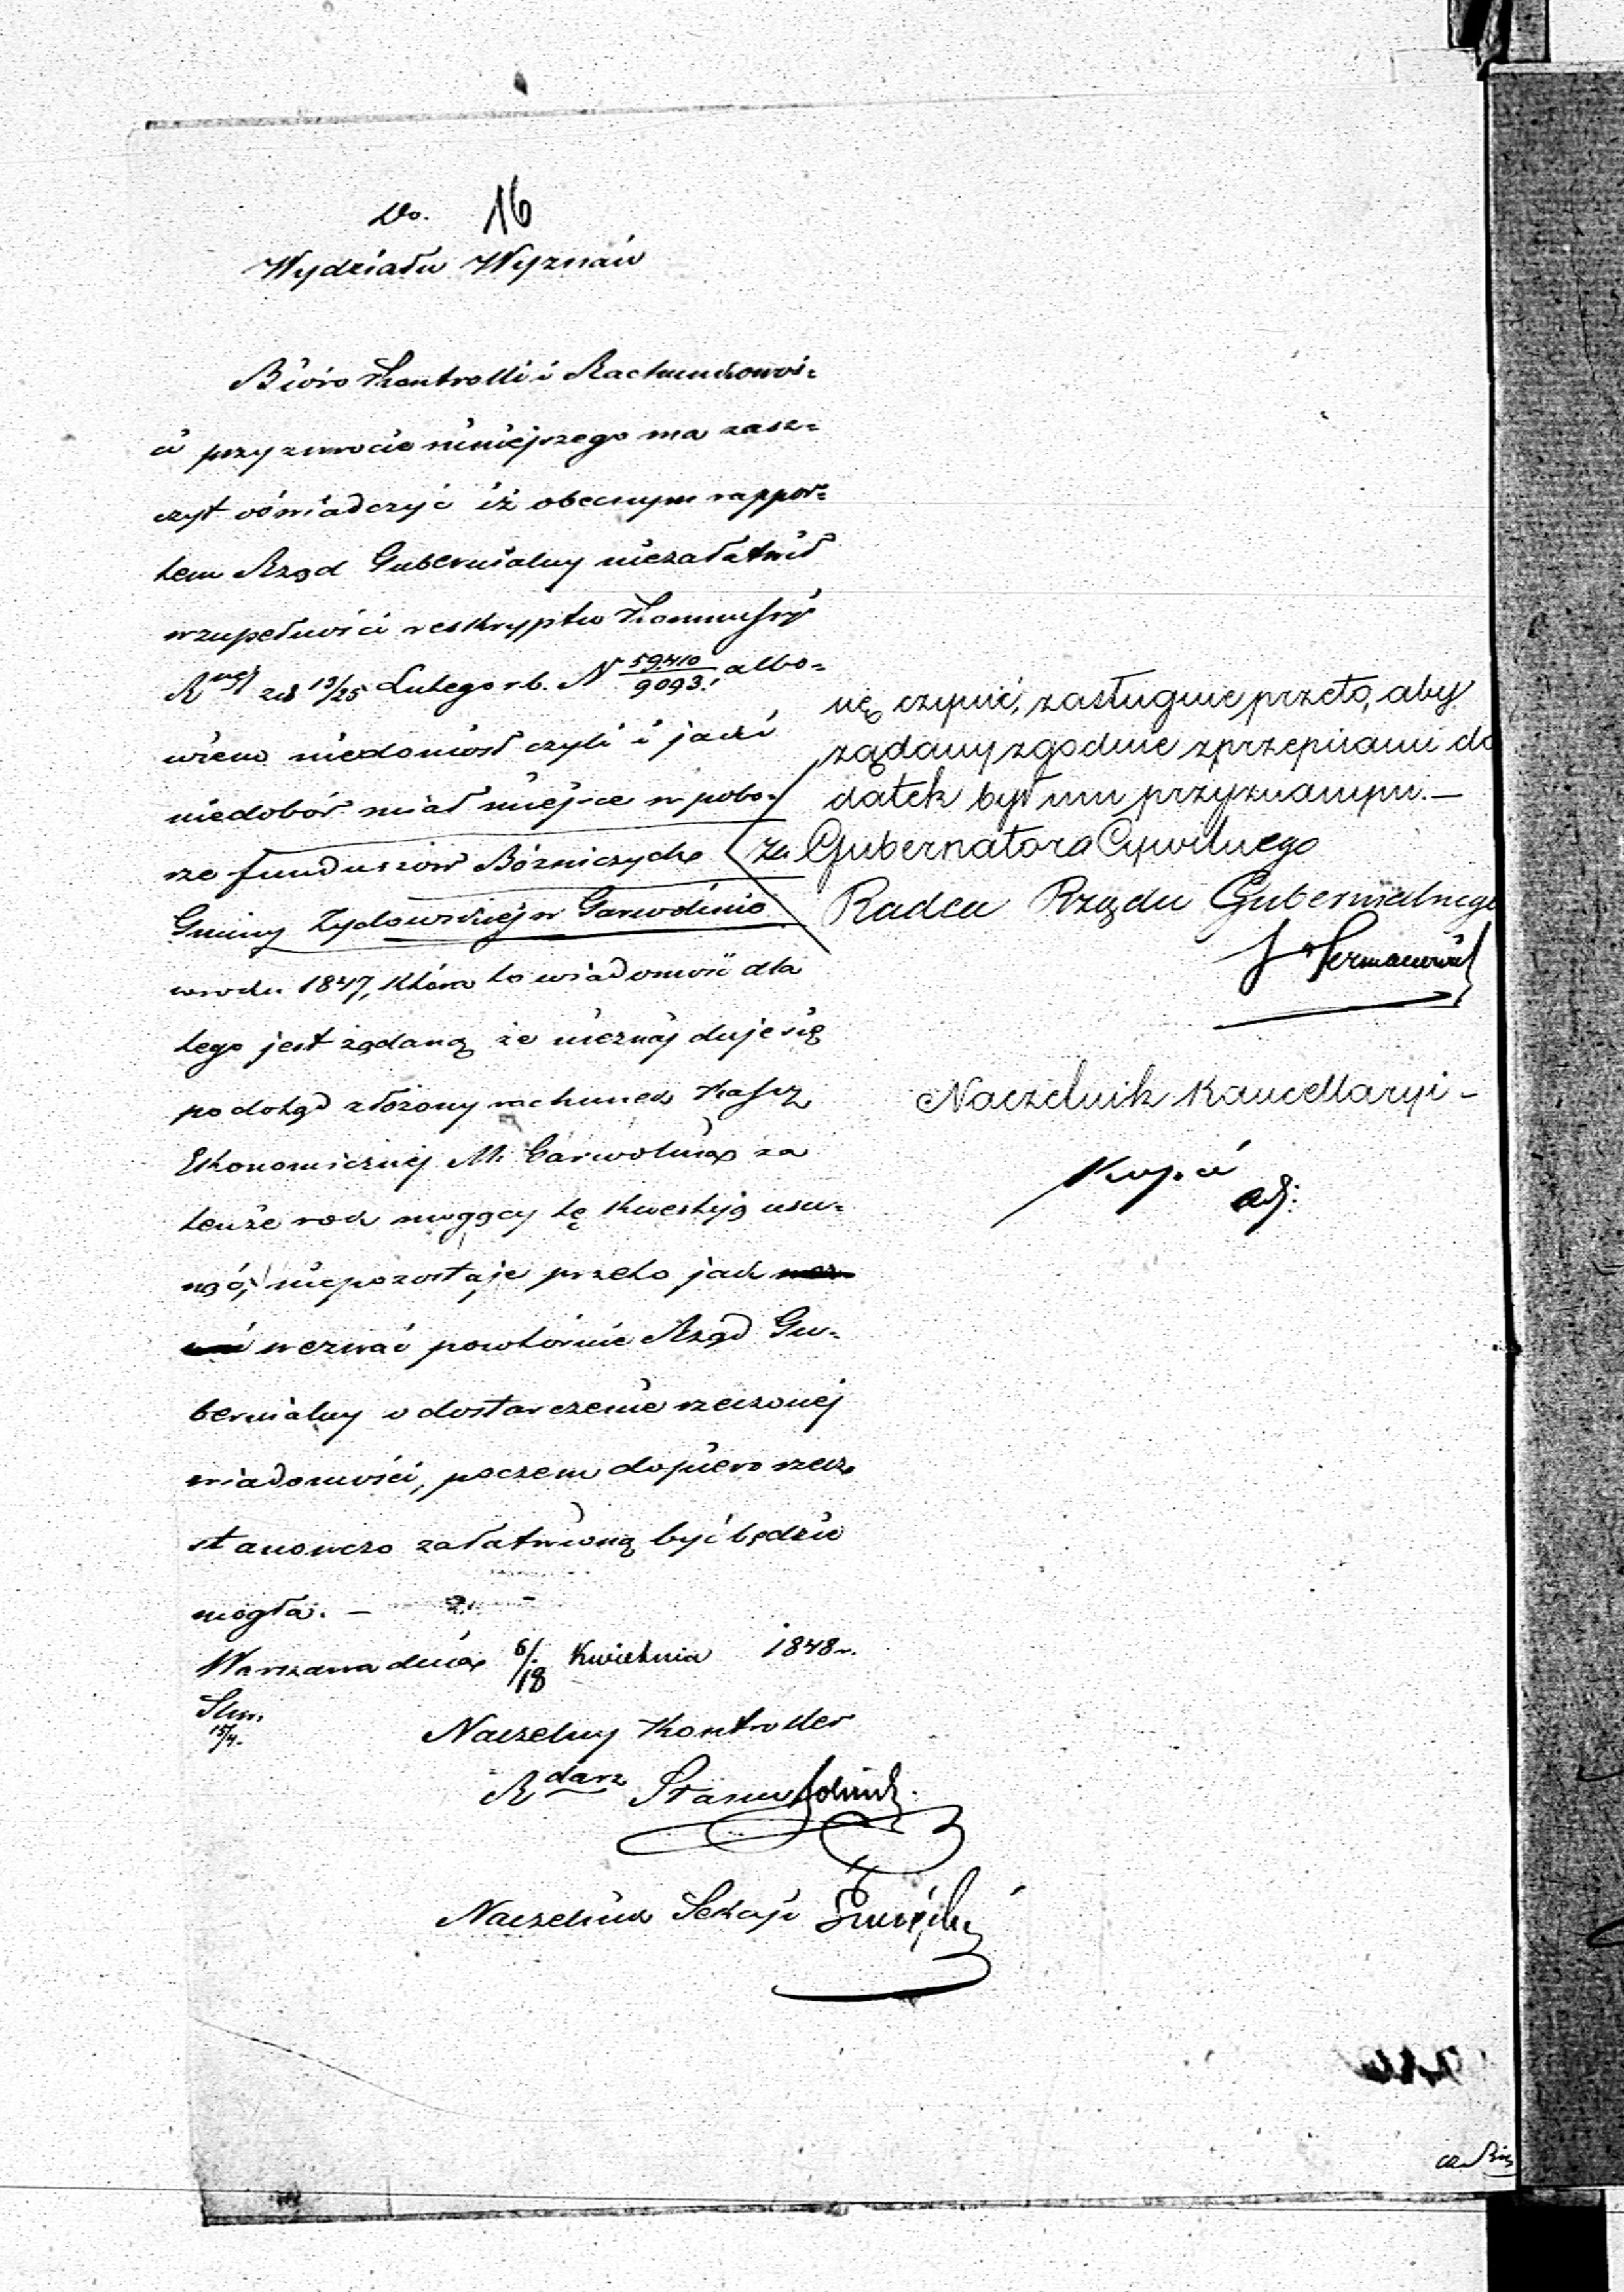 16
Do.
Wydziału Wyznań
Biuro Kontrolli i Rachunkowoś=
ci przy zwrocie niniejszego ma zasz=
czyt oświadczyć iż obecnym rappor=
tem Rząd Gubernialny niezałatwił
wzupełności reskryptu Kommissyi
R nej z d 13/25 Lutego r. b. N 59.410/9093. albo=
wiem niedoniósł czyli i jaki
niedobór miał miejsce w pobo=
rze funduszów Bóżniczych
Gminy Żydowskiej w Garwolinie
wroku 1847, która to wiadomość dla
tego jest żądaną że nieznajduje się
podotąd złożony rachunek Kassy
Ekonomicznej M. Garwolina za
tenże rok mogący tę kwestyją usu=
nąć, niepozostaje przeto jak
wezwać powtórnie Rząd Gu=
bernialny o dostarczenie rzeczonej
wiadomości, poczem dopiero rzecz
stanowczo załatwioną być będzie
mogła. —
Warszawa dnia 6/18 Kwietnia 1848 r.
15/4.
Naczelny Kontroller
R darz
Naczelnik Sekcyi
nę czynić, zasługuje przeto, aby
żądany zgodnie zprzepisami do
datek był mu przyznanym. —
za Gubernatora Cywilnego
Radca Rządu Gubernialnego
Naczelnik Kancellaryi -